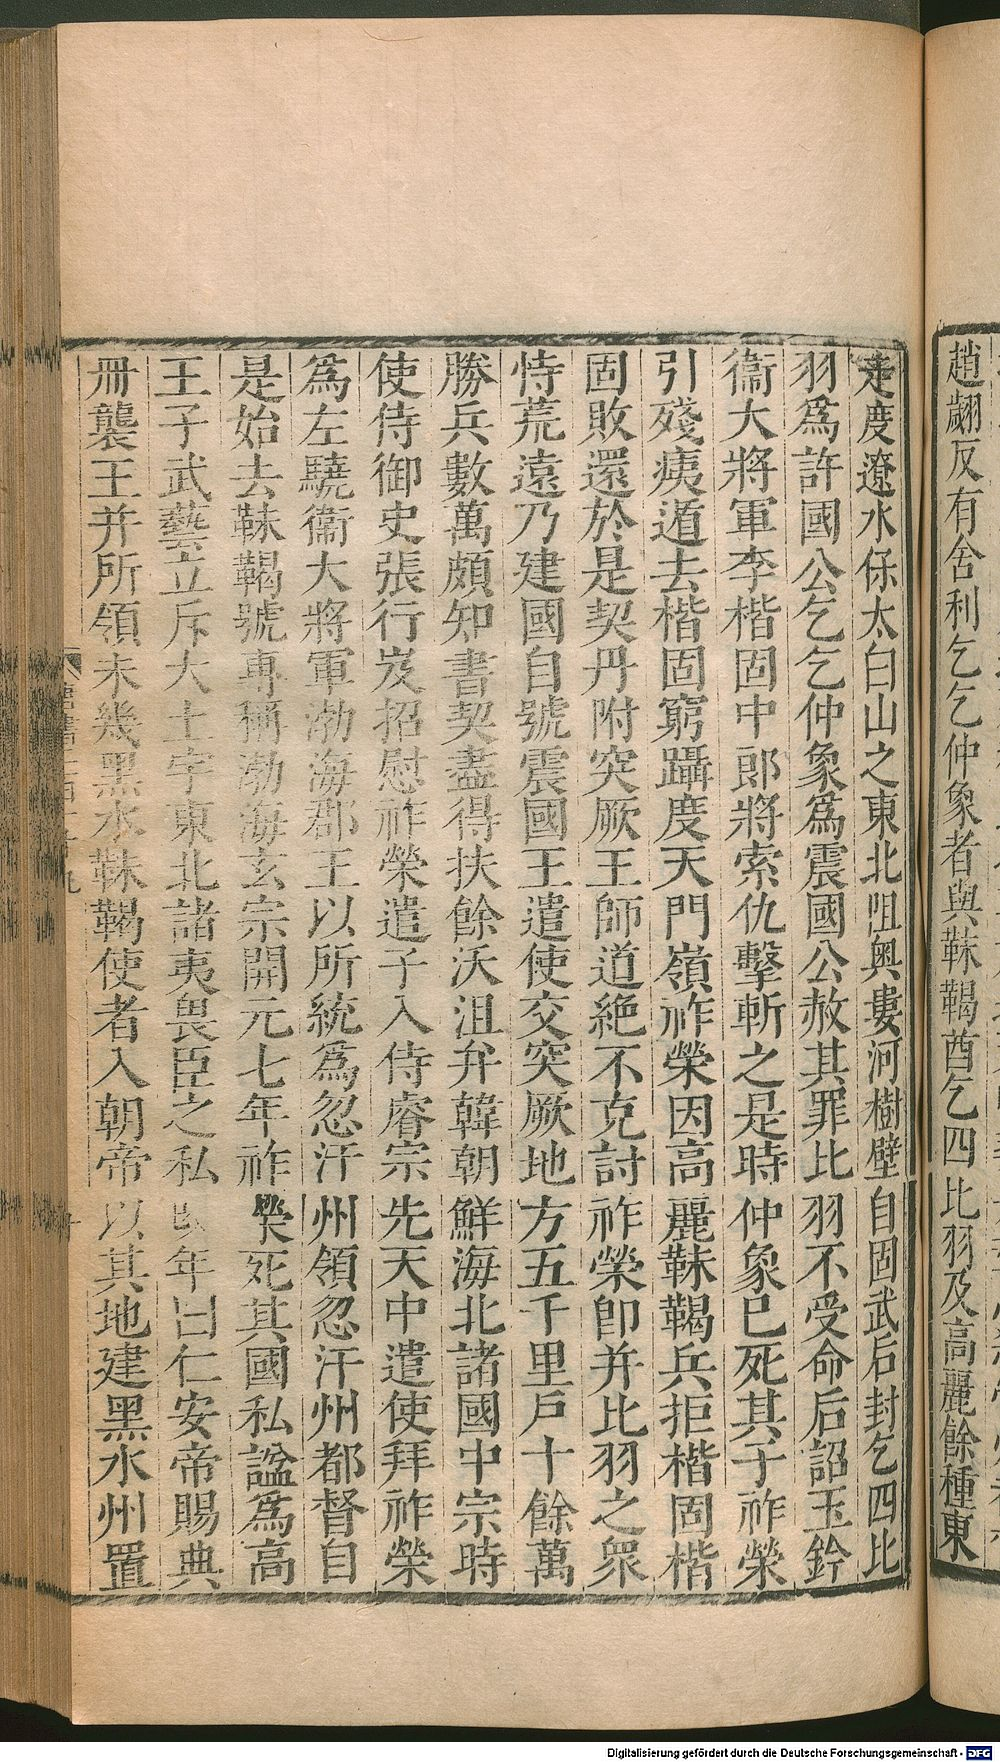 趙翽反有舍利乞乞仲象者與靺鞨酋乞四比羽及高麗餘種東
走度遼水保太白山之東北阻奧婁河樹壁自固武后封乞四比
羽爲許國公乞乞仲象爲震國公赦其罪比羽不受命后詔玉鈐
衞大將軍李楷固中郎將索仇擊斬之是時仲象已死其子祚榮
引殘痍遁去楷固窮躡度天門嶺祚榮因高麗靺鞨兵拒楷固楷
固敗還於是契丹附突厥王師道絶不克討祚榮卽并比羽之衆
恃荒遠乃建國自號震國王遣使交突厥地方五千里戶十餘萬
勝兵數萬頗知書契盡得扶餘沃沮弁韓朝鮮海北諸國中宗時
使侍御史張行岌招慰祚榮遣子入侍睿宗先天中遣使拜祚榮
爲左驍衞大將軍渤海郡王以所統爲忽汗州領忽汗州都督自
是始去靺鞨號專稱渤海玄宗開元七年祚榮死其國私諡爲高
王子武藝立斥大土宇東北諸夷畏臣之私改年曰仁安帝賜典
冊襲王并所領未幾黑水靺鞨使者入朝帝以其地建黑水州置
Digitalisierung gefördert durch die Deutsche Forschungsgemeinschaft - DFG